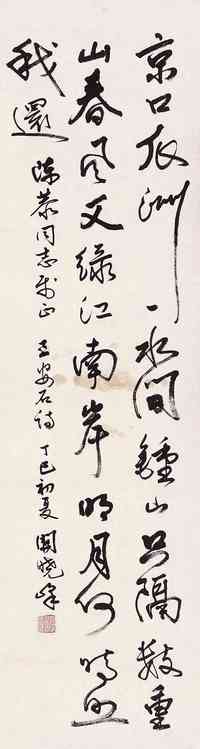 京口瓜洲一水间鍾山只隔数重
山春风又绿江南岸明月何时照
我還 同志 正 王安石诗 丁巳初夏 関晓峰